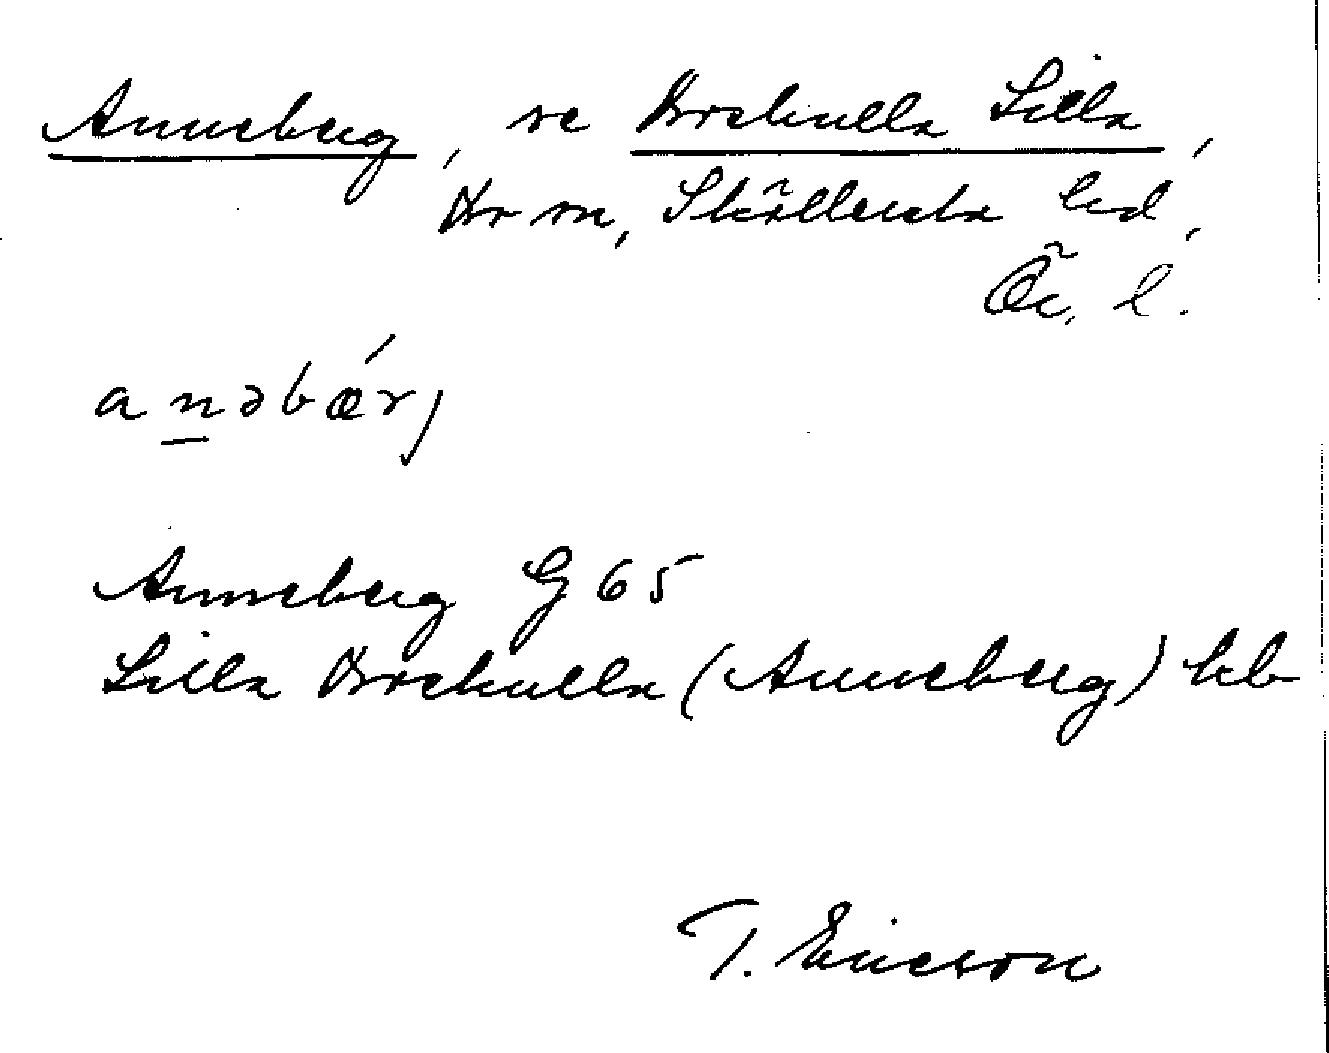 Anneberg, se Brokulla Lilla,
Kr sn, Sköllersta hd,
Ör. l.
anəbǽrj
Anneberg G 65
Lilla Brokulla (Anneberg) kb
T. Ericson